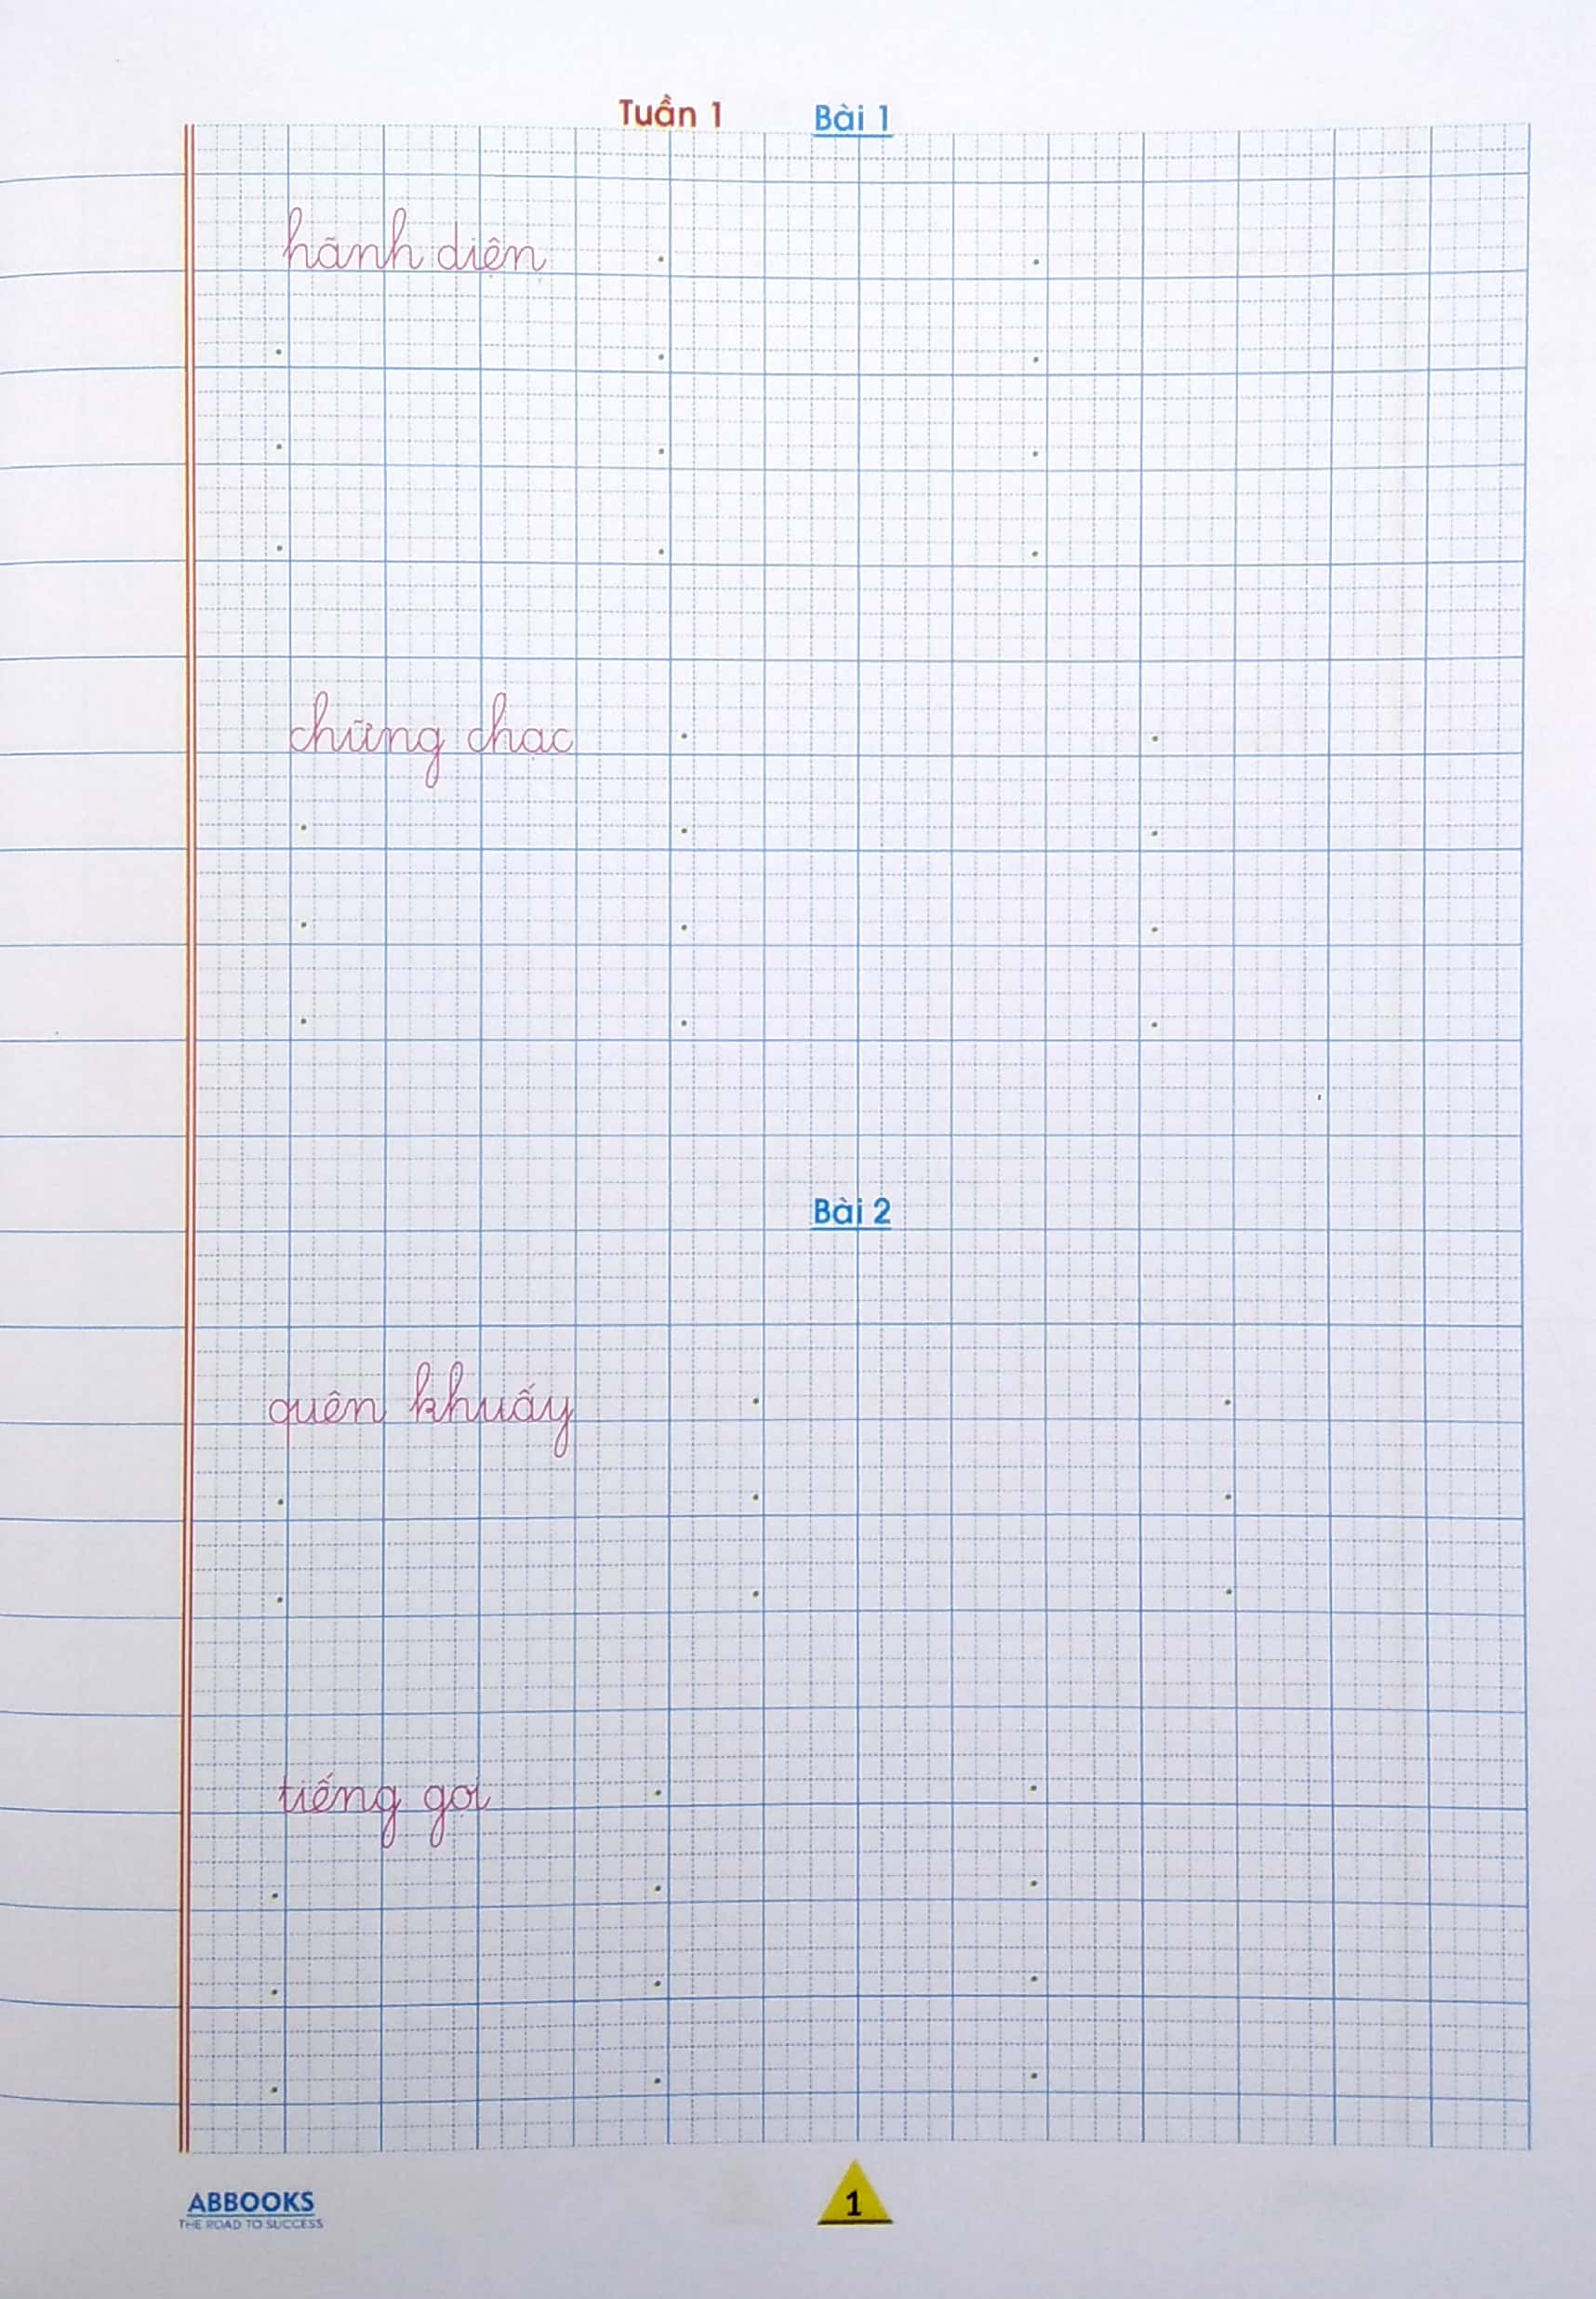 Tuần 1 Bài 1
hãnh diện
chững chạc
Bài 2
quên khuấy
tiếng gọi
ABBOOKS
THE ROAD TO SUCCESS
1